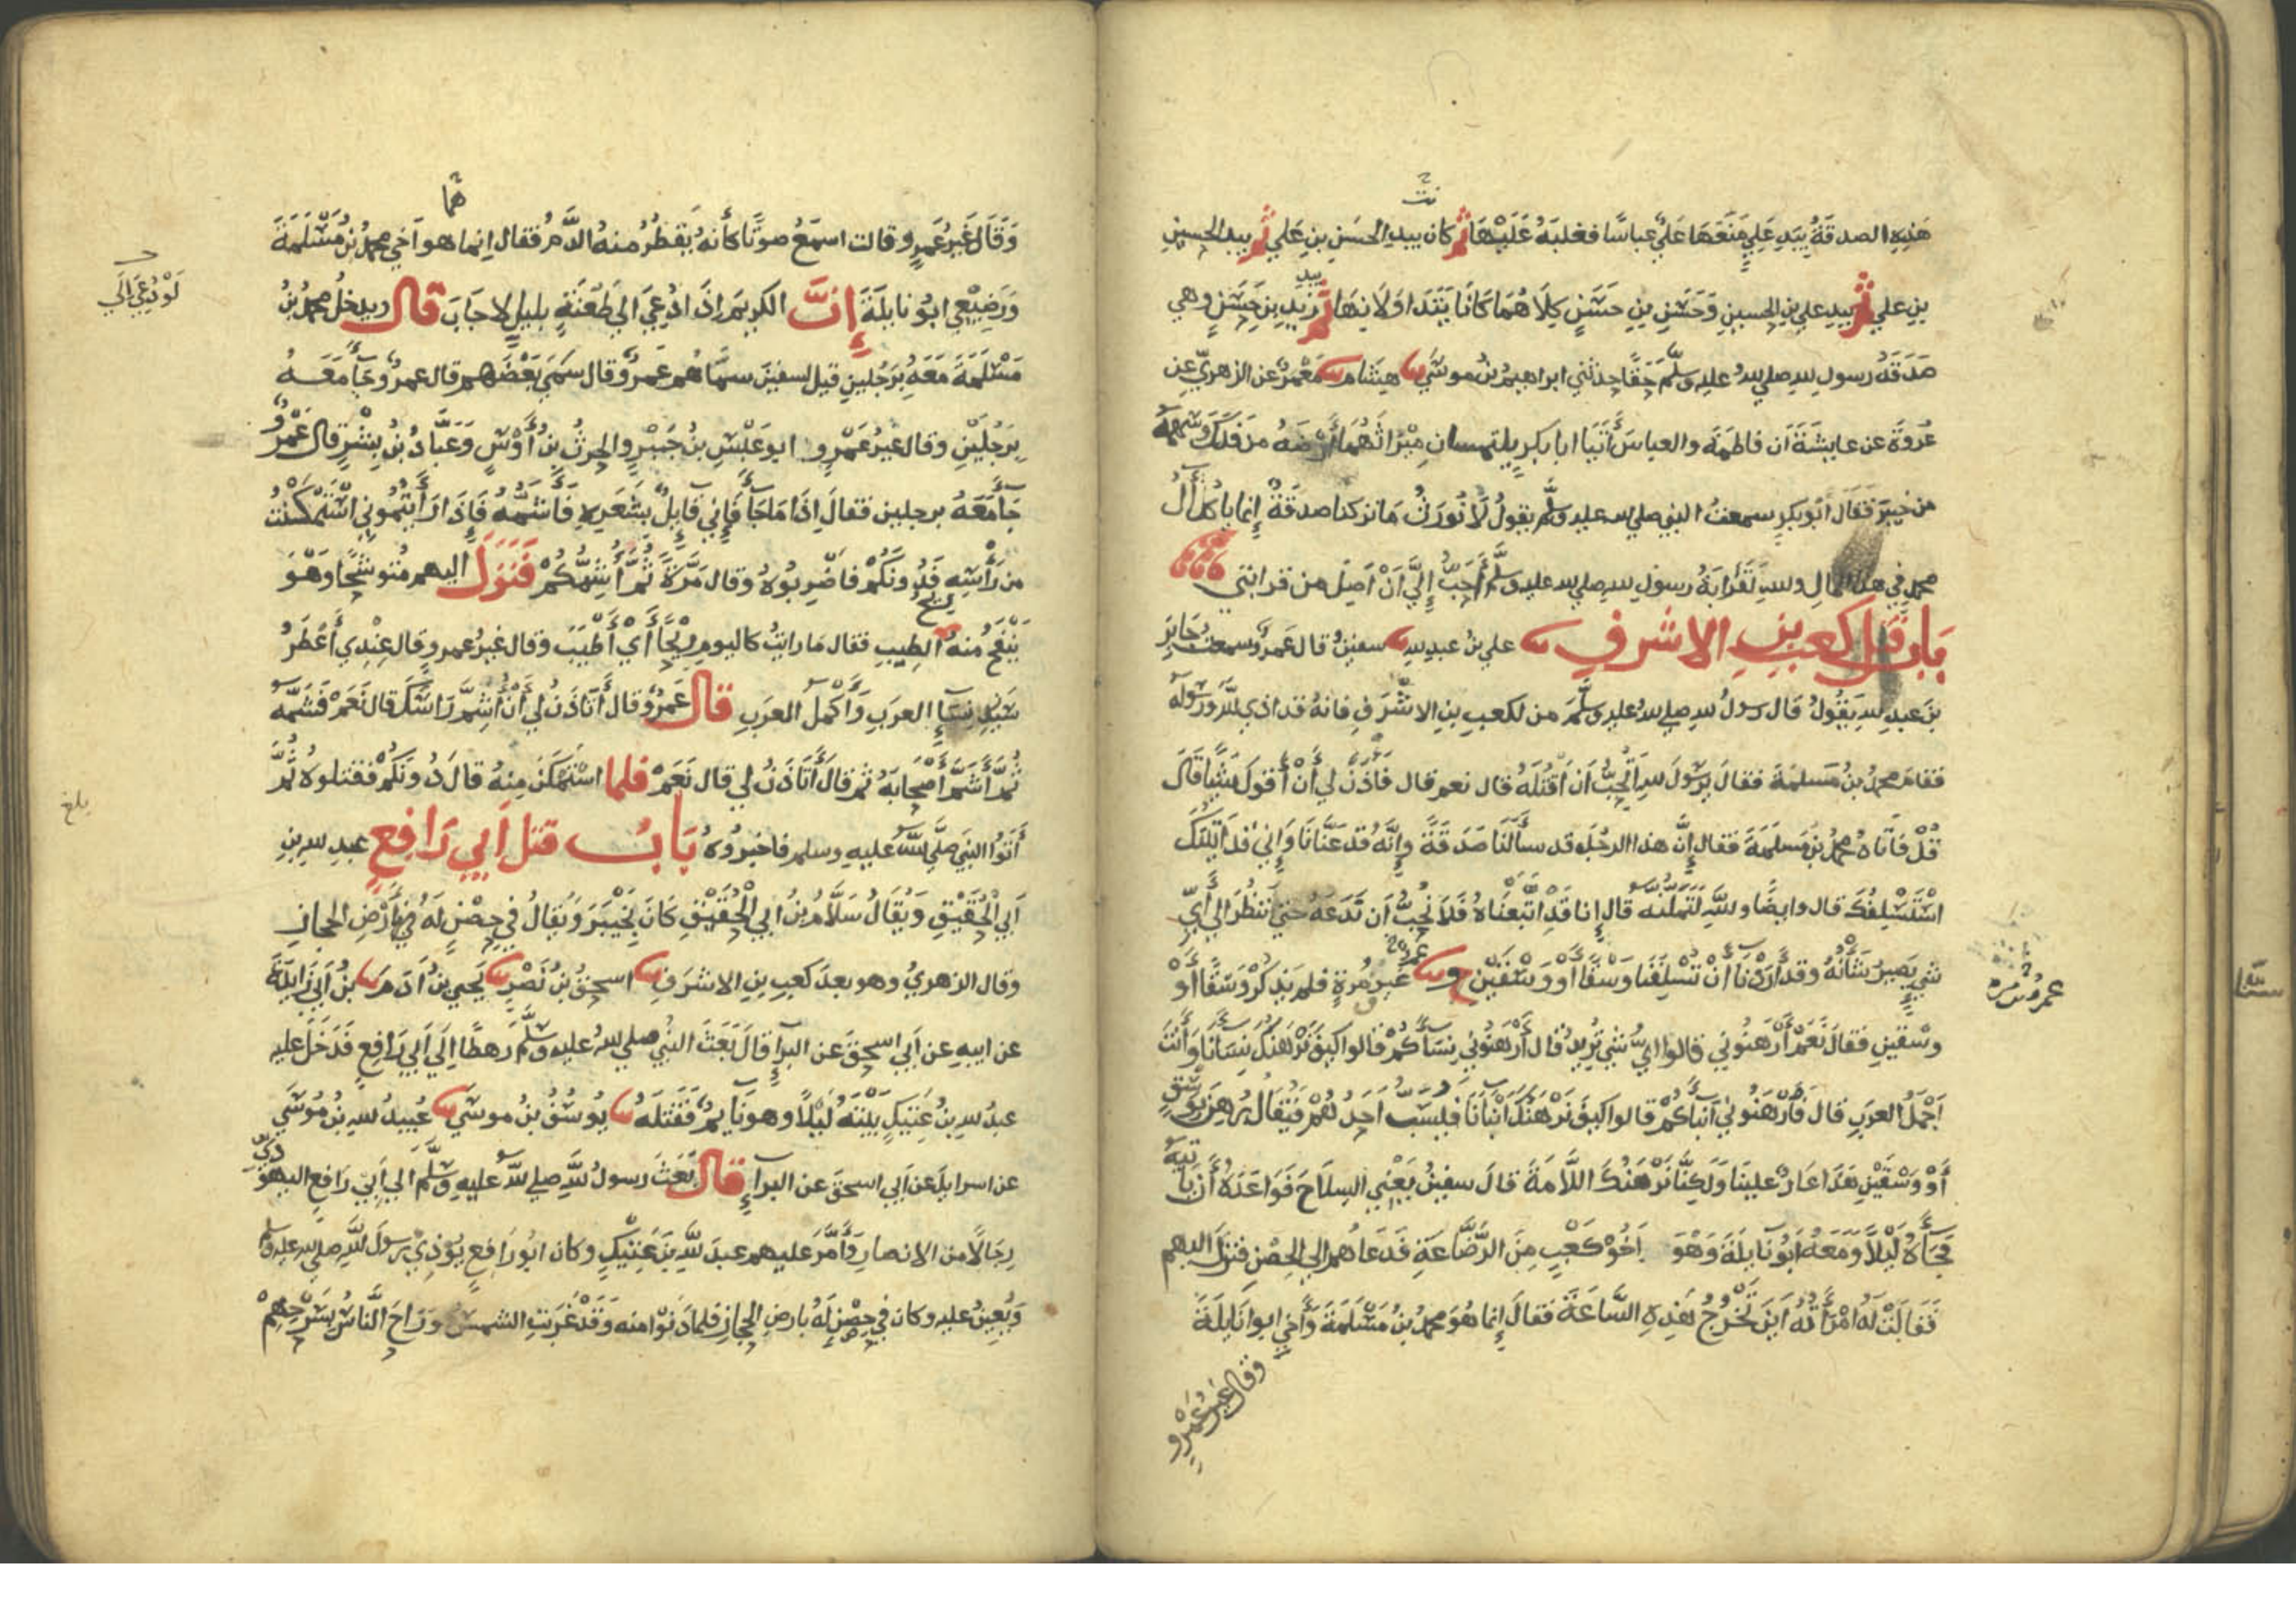 هَذِهِ الصدقَةُ بِيَدِ عَلِيٍّ مَنَعَهَا عَلِيٌّ عباسًا فغلبَهُ عَلَيْهَا ثُمَّ كان بيدِ الحسَنِ بنِ عَلي ثُمَّ بيد الحسين
بنِ علي ثُمَّ بيدِ علي بنِ الحسينِ وَحَسَنِ بنِ حَسَنٍ كِلَاهُمَا كَانَا يَتَدَاوَلَانِهَا ثُمَّ بيد زيدِ بنِ حَسَنٍ وهي
صَدَقَةُ رسولِ لله صلى لله عليه وسلَّم حَقًّا حدثني ابراهيمُ بنُ موسَى هِشام مَعْمَرٌ عن الزهريِّ عن
عُروَةَ عن عايشَةَ ان فاطمَةَ والعباسَ أَتَيَا ابا بكرٍ يلتمسانِ مِيْرَاثَهُمَا أَرْضَهُ من فَدَكٍ وَسَهمَهُ
من خيبرَ فَقَال أبُو بكرٍ سمعتُ النبي صلى لله عليه وسلَّم يقولُ لَا نُورَثُ مَا تركنا صدقَةٌ إِنما ياكُلُ آلُ
محمدٍ في هذا المالِ واللهِ لَقَرَابَةُ رسولِ لله صلى لله عليه وسلَّم أَحَبُّ إِلَيَّ أَنْ أَصِلَ من قرابتي
بَابُ قَتلِ كعبِ بنِ الاشرفِ علي بنُ عبدِ لله سفينُ قال عَمرٌو سمعتُ جَابِرَ
بنَ عبدِ لله يَقُولُ قال رسولُ لله صلى لله عليه وسلَّمَ من لكعبِ بنِ الاشْرَفِ فانهُ قد اذى اللَّهَ وَرَسُولَه
فقامَ محمدُ بنُ مَسلمَةَ فقالَ يَرسُولَ لله اَتُحِبُّ ان أَقتُلَهُ قال نعم قال فَاذَنْ لي أَنْ أَقُولَ شَيْأً قَالَ
قُلْ فَأَتَاهُ محمدُ بنُ مَسلَمَةَ فقال إِنَّ هذا الرجُلَ قد سأَلَنَا صَدَقَةً وَإِنَّهُ قد عَنَّانَا وَإِنِّي قد أَتَيْتُكَ
اسْتَسْلِفُكَ قال وايضًا واللهِ لَتَمَلُّنَّهُ قال إِنا قَدِ اتَّبَعْنَاهُ فَلَا نُحِبُّ ان نَدَعَهُ حتي نَنظُرَ الى أَيِّ
شيءٍ يَصيرُ شَأْنُهُ وقد أَرَدْنَا أَنْ تُسْلِفَنَا وَسْقًا أَوْ وَسْقَيْنِ ح و غيرَ مرةٍ فلم يَذكُرْ وَسْقًا أَوْ
وسْقَيْنِ فقالَ نَعَمْ أَرْهَنُونِي قالوا ايُّ شيءٍ تُرِيدُ قال أَرْهَنُونِي نِسَآكُمْ قالوا كيفَ نَرْهَنُكَ نِسَانَا وَأَنْتَ
اَجْمَلُ العربِ قال فَأَرْهَنُونِي أَبنآكُمْ قالوا كيفَ نَرْهَنُكَ أَبْنَانَا فَيُسَبُّ أَحَدُهُمْ فَيُقَالُ رُهِنَ بِوَسْقٍ
أَوْ وَسْقَيْنِ هَذَا عَارٌ علينا وَلَكِنَّا نَرْهَنُكَ اللَّأمَةَ قال سفينُ يَعْنِي السِلَاحَ فَوَاعَدَهُ أَن يَاتِيَهُ
فَجَآهُ لَيْلًا وَمَعَهُ أَبُو نايلَةَ وَهْوَ أَخُو كَعْبٍ مِنَ الرَّضَّاعَةِ فَدَعَاهُم الى الحِصْنِ فنزلَ اليهم
فَقَالَتْ لَهُ امْرَأَتُهُ أَيْنَ تَخْرُجُ هَذِهِ السَّاعَةَ فقالَ إِنما هُوَ محمدُ بنُ مَسْلَمَةَ وَأَخي ابوا نَايلَةَ
وقال غيرُ عَمْرٍو
وَقَالَ غَيرُ عَمرٍو قالت اسمَعُ صوتًا كأَنَّهُ يَقطُرُ منهُ الدَّمُ فقال إِنما هو أَخي محمدُ بنُ مَسْلَمَةَ
وَرَضِيْعِي ابُو نايلَةَ إِنَّ الكريمَ إذَا دُعِيَ الى طَعْنَةٍ بليلٍ لاجَابَ قال ويدخلُ محمدُ بنُ
لَوْ دُعِيَ إِلَى
مَسْلَمَةَ مَعَهُ بِرَجُلينِ قيل لسفينَ سمَّاهُم عَمرٌو قال سَمَّى بَعْضَهُم قال عمرٌو جَآ مَعَهُ
بِرَجُلَيْنِ وقال غيرُ عَمْرٍو ابو عَبْسِ بنُ جَبْرٍ والحرثُ بنُ أَوْسٍ وَعَبَّادُ بنُ بِشْرٍ قال عَمْرٌو
جَآ مَعَهُ برجلين فقال إِذَا مَا جَآ فَإِنِّي قَايِلٌ بِشَعَرِهِ فَأَشَمُّهُ فَإِذَا رَأَيْتُمُوني اسْتَمْكَنْتُ
من رَأْسِهِ فَدُونَكُمْ فَاضْرِبُوهُ وقال مَرَّةً ثُمَّ أُشِمُّكُمْ فَنَزَلَ اليهم مُتَوشِّحًا وَهْوَ
يَنْفَحُ منهُ ريحُ الطِيبِ فقال مَا رايتُ كاليومِ رِيْحًا أَيْ أَطْيَبَ وقال غيرُ عمرٍو قال عِنْدِي أَعْطَرُ
سَيِّدِ نِسَآءِ العرَبِ وَأَكْمَلُ العرَبِ قال عَمرٌو قال أَتَاذَنُ لي أَنْ أَشمَّ رَاسَكَ قال نَعَمْ فَشَمَّهُ
ثُمَّ أَشَمَّ أَصْحَابَهُ ثم قالَ أَتَاذَنُ لي قال نَعَمْ فلما اسْتَمْكَنَ مِنهُ قال دُونَكُمْ فقتلوهُ ثُمَّ
بلغ
أَتَوُا النبيَّ صَلَّى اللَّهُ عليهِ وسلم فاخبرُوهُ بَابُ قتل أَبِي رَافِعٍ عبدِ لله بنِ
أَبي الْحُقَيْقِ وَيُقَالُ سَلَّامُ بنُ ابي الْحُقَيْقِ كَانَ بِخَيْبَرَ وَيُقالُ في حِصْنٍ لَهُ بِأَرْضِ الحجازِ
وقال الزهريُّ وهو بعدَ كعبِ بنِ الاشرَفِ اسحقُ بنُ نَصْرٍ يَحيى بنُ آدَمَ بنُ أَبي زَايِدَةَ
عن ابيهِ عن أَبي اسحقَ عن البرآءِ قالَ بَعَثَ النبيُّ صلى لله عليه وسلَّم رَهطًا إِلَى أَبي رَافِعٍ فَدَخَلَ عليهِ
عبدُ لله بنُ عَتِيكٍ بَيْتَهُ لَيْلًا وهو نَايِمٌ فَقَتَلَهُ يُوسُفُ بنُ موسَى عُبيدُ لله بنُ مُوسَى
عن اسرايلَ عن أَبي اسحقَ عن البرآءِ قال بَعَثَ رسولُ لله صلى الله عليهِ وسلَّم الى أَبِي رَافِعٍ اليهودِيِّ
رِجَالًا من الانصارِ وَأَمَّرَ عليهم عبدَ للهِ بنَ عَتِيْكٍ وكان ابُو رَافِعٍ يُؤذِيْ رسولَ اللهِ صلى لله عليه وسلم
وَيُعِينُ عليهِ وكان في حِصْنٍ لَهُ بارضِ الحجازِ فلما دَنَوْا منه وَقَدْ غَرَبَتِ الشمسُ وَرَاحَ النَّاسُ بِسَرْحِهِمْ